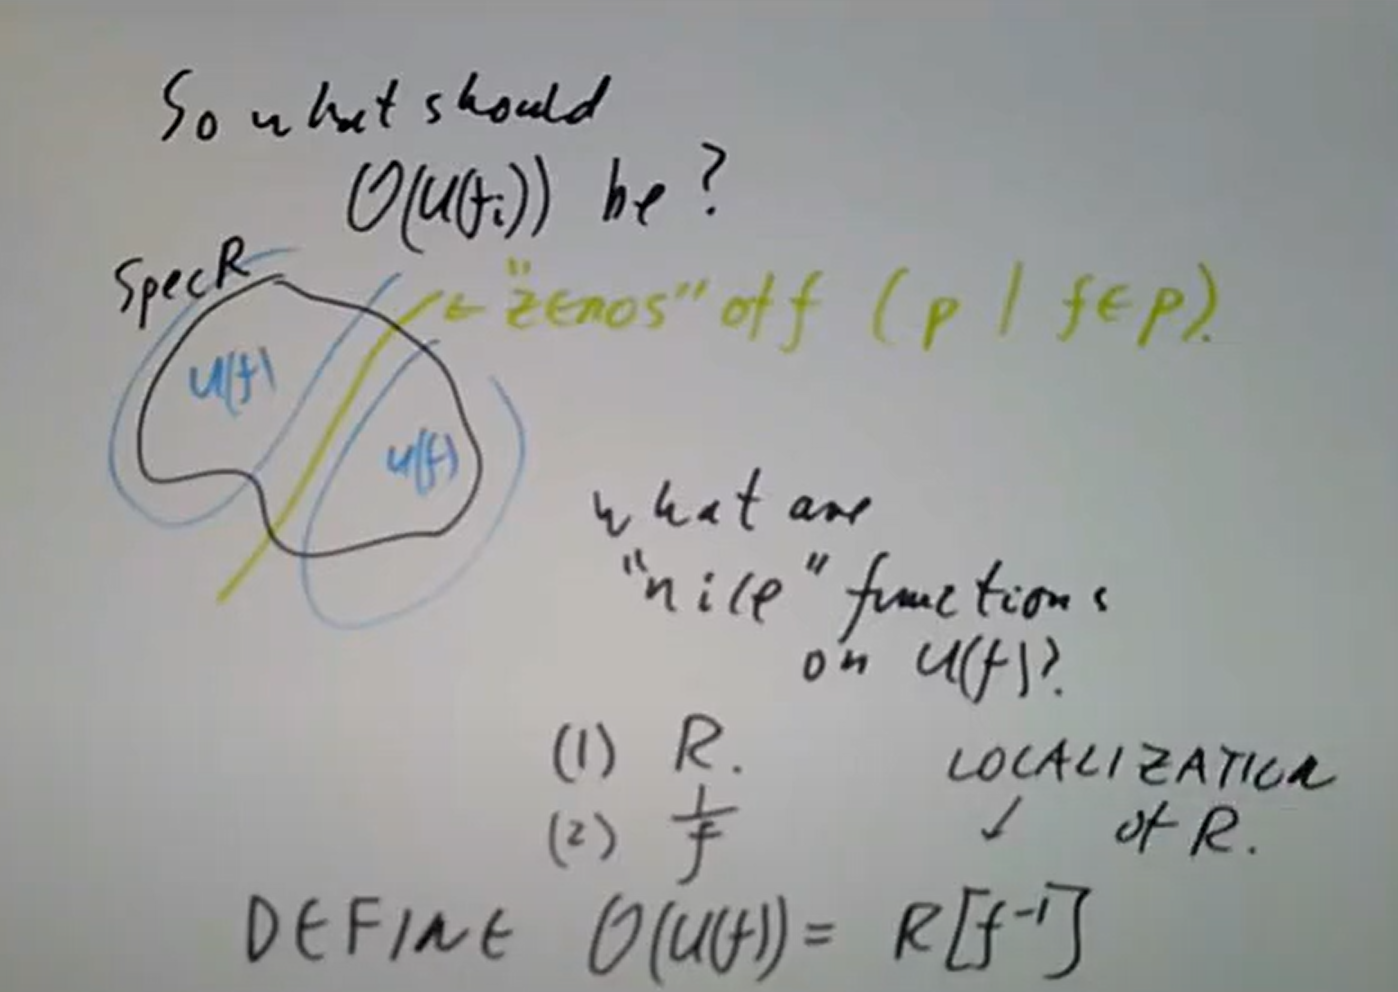 So what should
O(U(fi)) be?
Spec R
← "zeros" of f (p | f∈p).
U(f)
U(f)
what are
"nice" functions
on U(f)?
(1) R.
(2) 1/f
LOCALIZATION
↓ of R.
DEFINE O(U(f)) = R[f⁻¹]